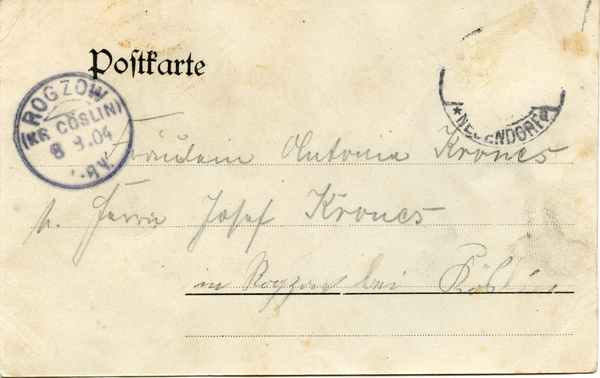 Postkarte
ROGZOW
(KR. CÖSLIN)
8 3.04
*NEUENDORF*
Fräulein Antonia Krones
p. Herrn Josef Krones
in Rogzow bei Köslin